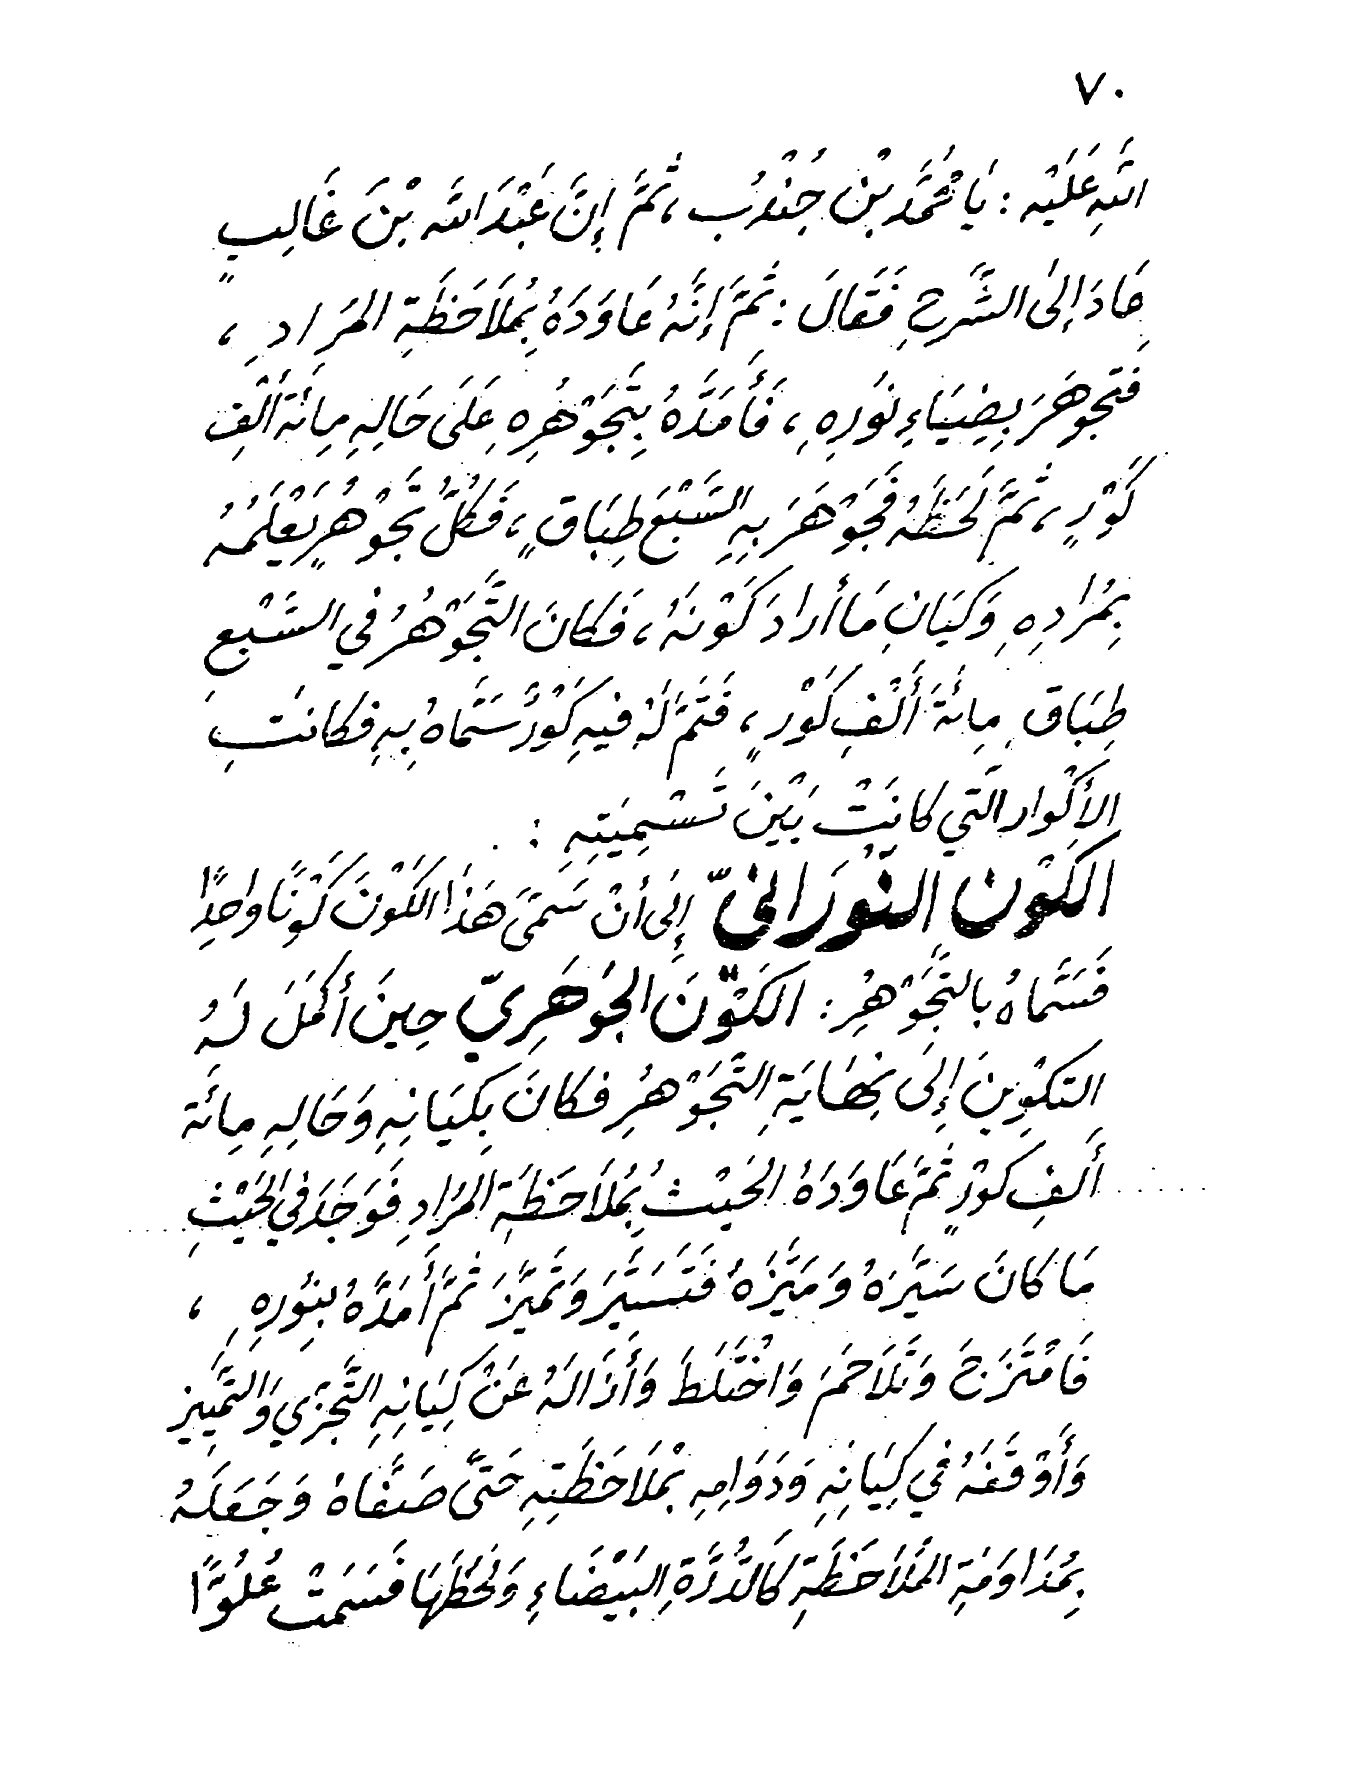 ٧٠
اللَّهِ عَلَيْه : يَا مُحَمَّدَ بْنَ جُنْدُب ، ثُمَّ إِنَّ عَبْدَ اللَّه بْنَ غَالِبٍ
عَادَ إِلَى الشَّرْحِ فَقَالَ : ثُمَّ إِنَّهُ عَاوَدَهُ بِمُلَاحَظَةِ المُرَادِ ،
فَتَجَوْهَرَ بِضِيَاءِ نُورِهِ ، فَأَمَدَّهُ بِتَجَوْهُرِهِ عَلَى حَالِهِ مِائَةَ أَلْفِ
كَوْرٍ ، ثُمَّ لَحَظَهُ فَجَوْهَرَ بِهِ السَّبْعَ طِبَاقٍ ، فَكُلُّ تَجَوْهُرٍ يَعْلَمُهُ
بِمُرَادِهِ وَكِيَانِ مَا أَرَادَ كَوْنَهُ ، فَكَانَ التَّجَوْهُرُ فِي السَّبْعِ
طِبَاقِ مِائَةَ أَلْفِ كَوْرٍ ، فَتَمَّ لَهُ فِيهِ كَوْرٌ سَمَّاهُ بِهِ فَكَانَتِ
الأَكْوَارُ الَّتِي كَانَتْ بَيْنَ تَسْمِيَتِهِ :
الكَوْنِ النُّورَانِيّ إِلَى أَنْ سَمَّى هَذَا الكَوْنَ كَوْنًا وَاحِدًا
فَسَمَّاهُ بِالتَّجَوْهُرِ : الكَوْنَ الجَوْهَرِيّ حِينَ أَكْمَلَ لَهُ
التَكْوِينَ إِلَى نِهَايَةِ التَّجَوْهُرِ فَكَانَ بِكِيَانِهِ وَحَالِهِ مِائَةَ
أَلْفِ كَوْرٍ ثُمَّ عَاوَدَهُ الحَيْثُ بِمُلَاحَظَةِ المُرَادِ فَوَجَدَ فِي الحَيْثِ
مَا كَانَ سَيَّرَهُ وَمَيَّزَهُ فَتَسَيَّرَ وَتَمَيَّزَ ثُمَّ أَمَدَّهُ بِنُورِهِ ،
فَامْتَزَجَ وَتَلَاحَمَ وَاخْتَلَطَ وَأَزَالَهُ عَنْ كِيَانِهِ التَّجَزِّي وَالتَّمْيِيز
وَأَوْقَفَهُ فِي كِيَانِهِ وَدَوَامِهِ بِمُلَاحَظَتِهِ حَتَّى صَفَّاهُ وَجَعَلَهُ
بِمُدَاوَمَةِ المُلَاحَظَةِ كَالدُّرَّةِ البَيْضَاءِ وَلَحَظَهَا فَسَمَتْ عُلُوًّا